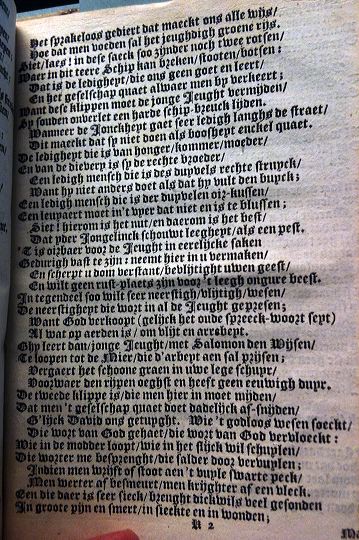 Het sprakeloos gediert dat maeckt ons alle wijs/
Hoe dat men voeden sal het jeughdigh groene rijs.
Siet/laes! in dese saeck soo zijnder noch twee rotsen/
Waer in dit teere Schip kan breken/stooten/botsen:
Dat is de ledigheyt/die ons geen goet en leert/
En het geselschap quaet alwaer men by verkeert;
Want dese klippen moet de jonge Jeught vermijden/
Sy souden onverlet een harde schip-breuck lijden.
Wanneer de Jonckheyt gaet seer ledigh langhs de straet/
Dit maeckt dat sy niet doen als boosheyt enckel quaet.
De ledigheyt die is van honger/kommer/moeder/
En van de dieverp is sp de rechte broeder/
Een ledigh mensch die is des duyvels rechte struyck/
Want hy niet anders doet als dat hy vult den buyck;
Een ledigh mensch die is der duyvelen oir-kussen/
Een leupaert moet in't vper dat niet en is te blussen;
Siet! hierom is het nut/en daerom is het best/
Dat yder Jongelinck schouwt leegheyt/als een pest.
'T is oirbaer voor de Jeught in eerelijcke saken
Gedurigh vast te zijn: neemt hier in u vermaken/
En scherpt u dom verstant/bevlijtight uwen geest/
En wilt geen rust-plaets zijn voor 't leegh ongure beest.
In tegendeel soo wilt seer neerstigh/vlijtigh/wesen/
De neerstigheyt die wort in al de Jeught gepresen;
Want God verkoopt (gelijck het oude spreeck-woort sept)
Al wat op aerden is/om vlijt en arrebept.
Ghy leert dan/jonge Jeught/met Salomon den Wijsen/
Te loopen tot de Mier/die d'arbept aen sal prijsen;
Vergaert het schoone graen in uwe lege schupr/
Voorwaer den rijpen oeghst en heeft geen eeuwigh dupr.
De tweede klippe is/die men hier in moet mijden/
Dat men 't geselschap quaet doet dadelijck af-snijden/
G'lijck David ons getupght. Wie 't godloos wesen soeckt/
Die wort van God gehaet/die wort van God vervloeckt:
Wie in de modder loopt/wie in het slijck wil schuplen/
Die worter me besprenght/die salder door vervuplen;
Indien men wrijft of stoot aen't vuple swarte peck/
Men werter af besmeurt/men krijghter af een vleck.
Een die daer is seer sieck/brenght dickwils veel gesonden
In groote pijn en smert/in sieckte en in wonden;
K 2